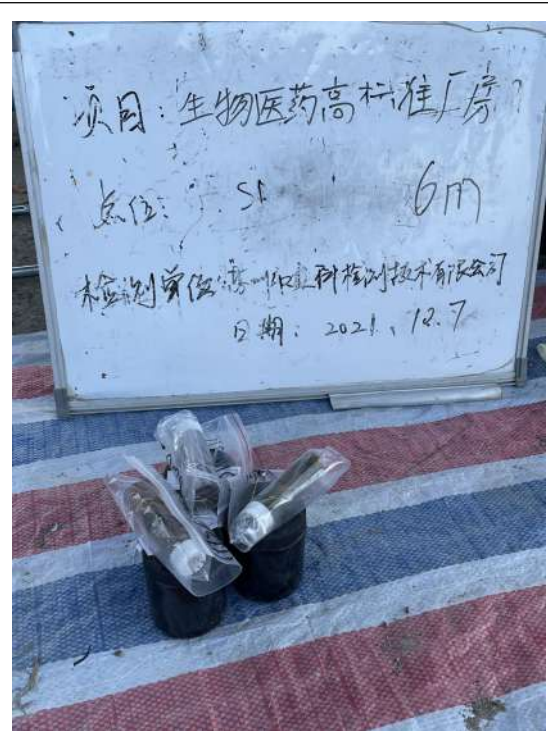 项目:生物医药高标准厂房
点位: S1 6m
检测单位:苏州 科检测技术有限公司
日期: 2021、12.7